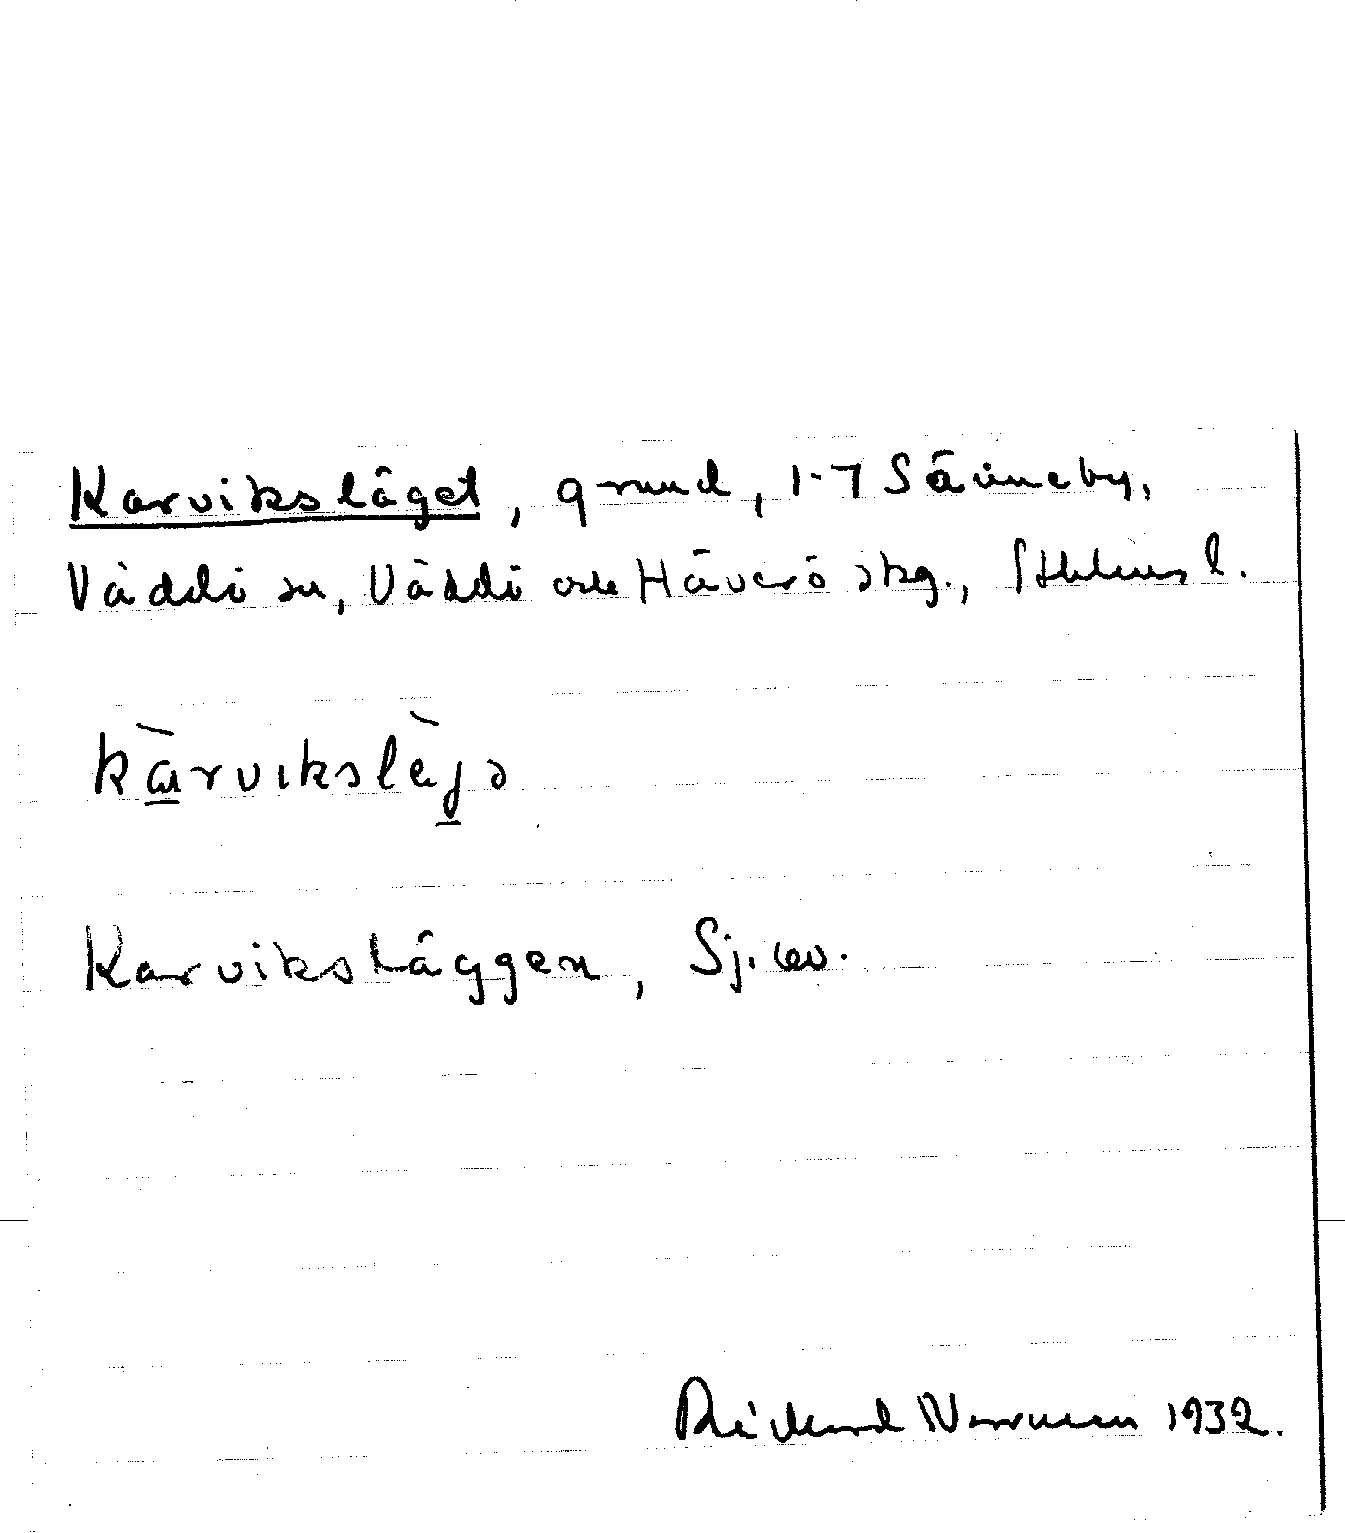 Karviksläget, grund, 1-7 Sävneby,
Väddö sn, Väddö och Häverö skg., Sthlms l.
kàrvikslèjə
Karviksläggen, Sj.
Rickard Norrman 1932.